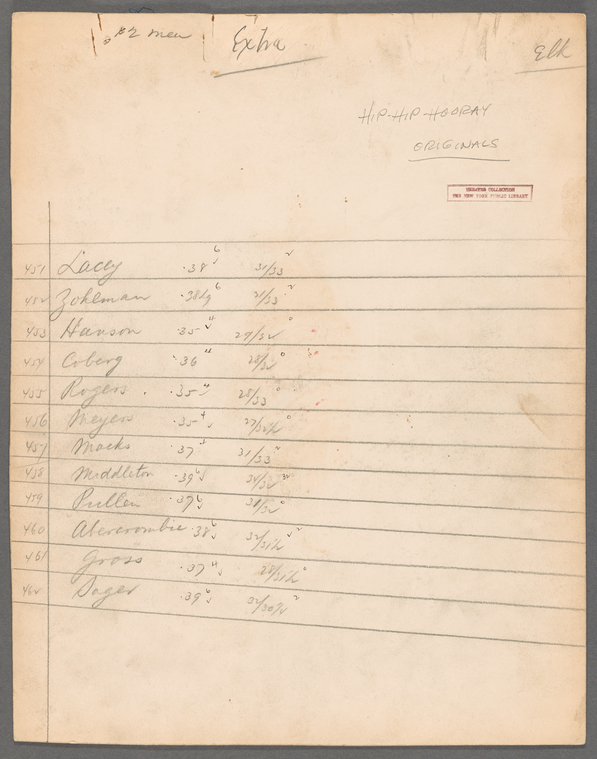 #2 men Extra Elk
HIP-HIP-HOORAY
ORIGINALS
THEATRE COLLECTION
THE NEW YORK PUBLIC LIBRARY
451 Lacey .38 6 31/33 2
452 Zohlman 6 31/33 2
453 Hanson .35 4 29/32 0
454 Coberg .36 4 28/32 0
455 Rogers .35 4 28/33 0
456 Meyers .35 4 0
457 Macks .37 31/33
458 Middleton .39 34/32
459 Pullen .37 6 0
460 Abercrombie .38 6 32/31½ 2
461 Gross .37 4 28/31½ 0
462 Sager .39 6 2